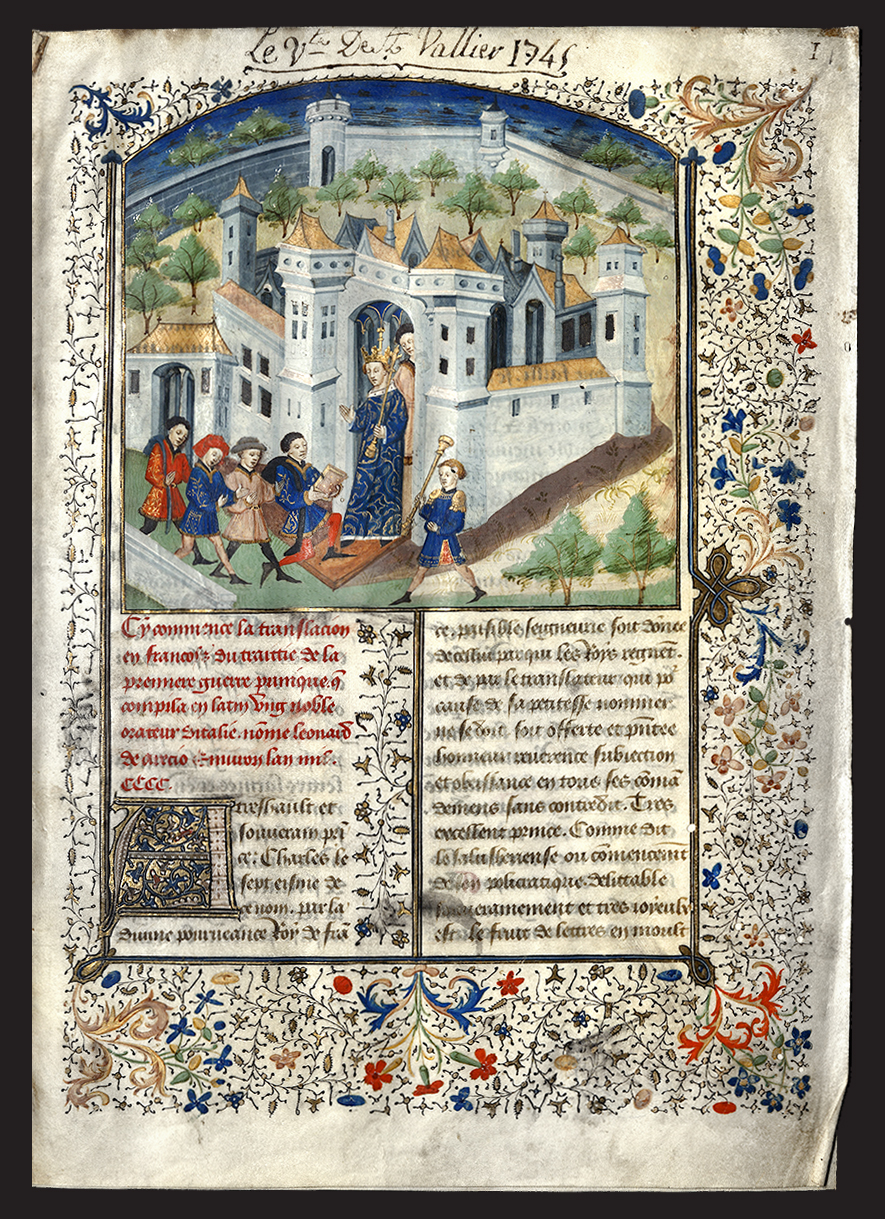 Le Vte De St Vallier 1745
I
Cy commence la translacion
en francois du traittie de la
premiere guerre punique. q̄
compila en latin vng noble
orateur ditalie. nōme leonard
de arecio enuiron lan mil.
CCCC.
A treshault et
souuerain prī
ce. Charles le
septeisme de
ce nom. par la
diuine pourueance Roy de frā
ce, paisible seigneurie soit donee
de cellui par qui les Roys regnet.
et de par le translateur qui po˳
cause de sa petitesse nommer
ne se doit, soit offerte et pn̄tee
honneur reuerence subiection
et obeissance en tous ses cōmā
demens sans contredit. Tres
excellent prince. Comme dit
le salisberiense ou cōmencemt
de son policratique. delittable
souuerainement et tres ioyeulx
est le fruit de lettres en moult